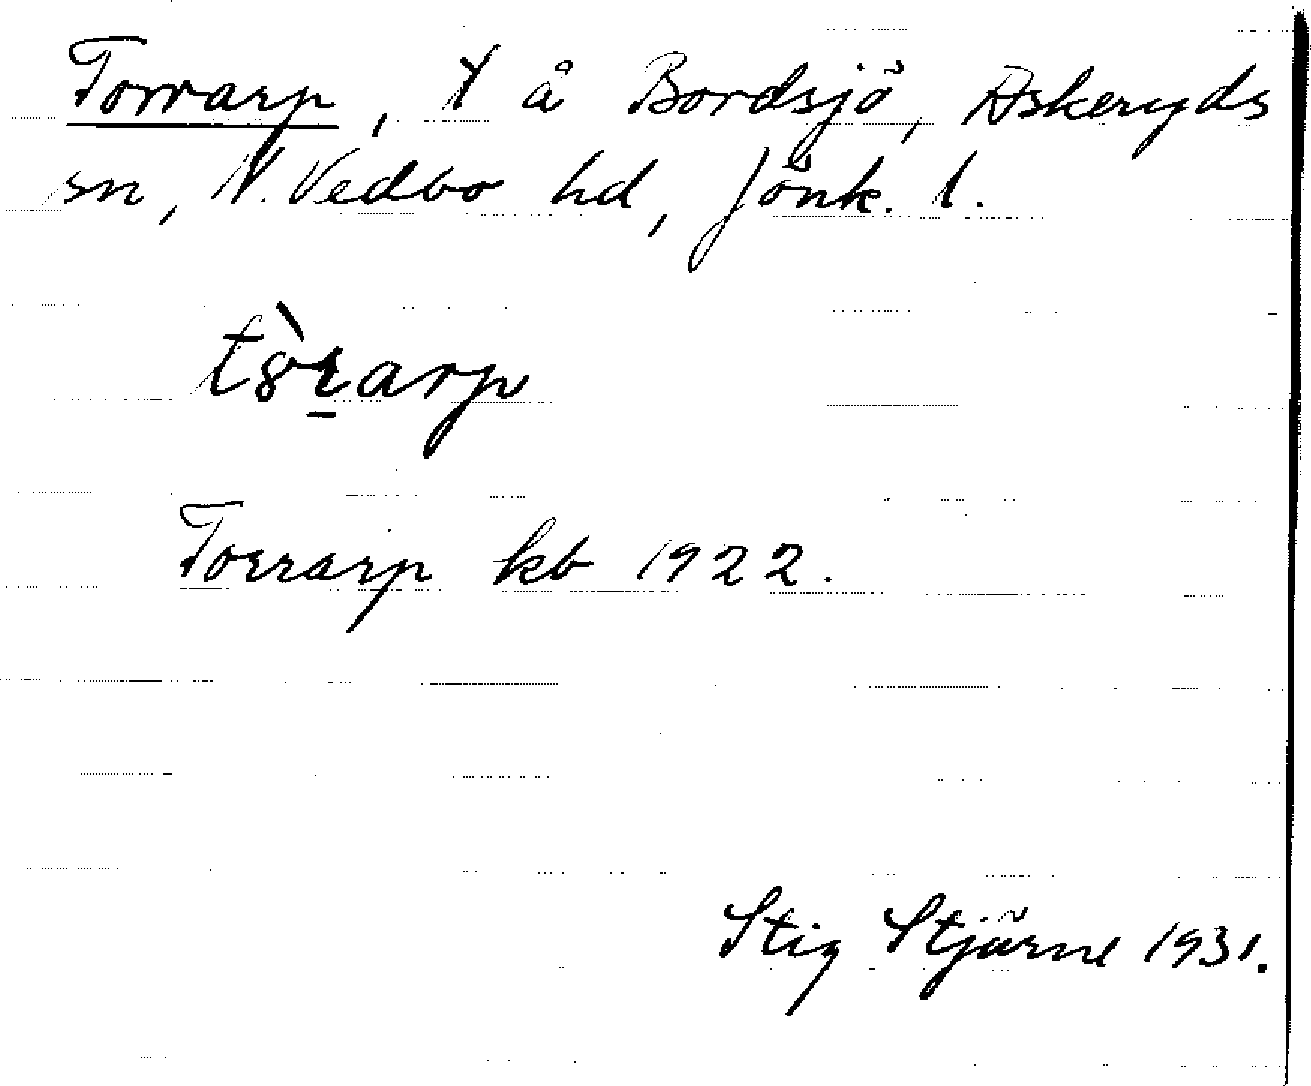 Torrarp, t å Bordsjö, Askeryds
sn, N. Vedbo hd, Jönk. l.
tȣ̀ɽarp
Torrarp kb 1922.
Stig Stjärne 1931.